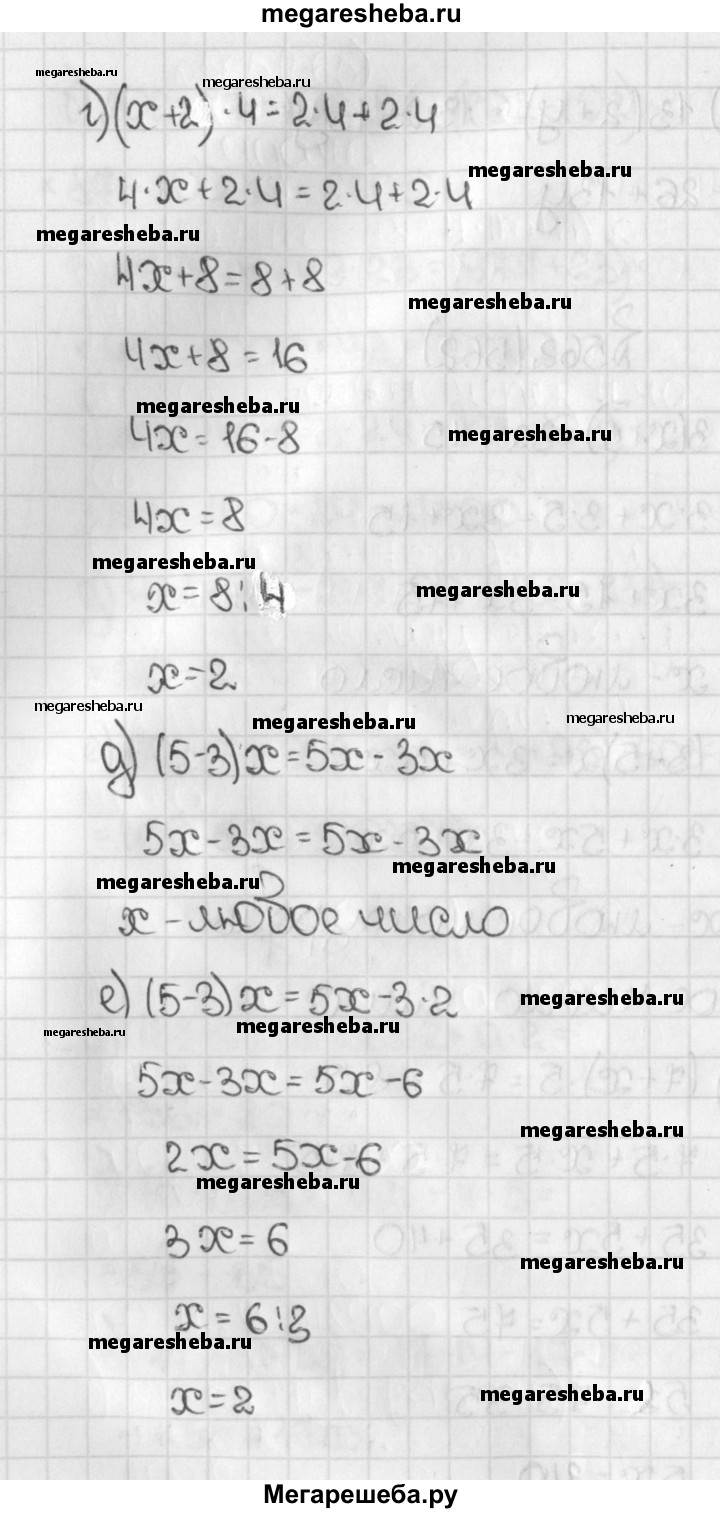 megaresheba.ru
megaresheba.ru
megaresheba.ru
г) (x+2)·4=2·4+2·4
megaresheba.ru
4·x+2·4=2·4+2·4
megaresheba.ru
4x+8=8+8
megaresheba.ru
4x+8=16
megaresheba.ru
4x=16-8
megaresheba.ru
4x=8
megaresheba.ru
x=8:4
megaresheba.ru
x=2
megaresheba.ru
megaresheba.ru
megaresheba.ru
д) (5-3)x=5x-3x
5x-3x=5x-3x
megaresheba.ru
megaresheba.ru
x-любое число
е) (5-3)x=5x-3·2
megaresheba.ru
megaresheba.ru
megaresheba.ru
5x-3x=5x-6
megaresheba.ru
2x=5x-6
megaresheba.ru
3x=6
megaresheba.ru
x=6:3
megaresheba.ru
x=2
megaresheba.ru
Мегарешеба.ру